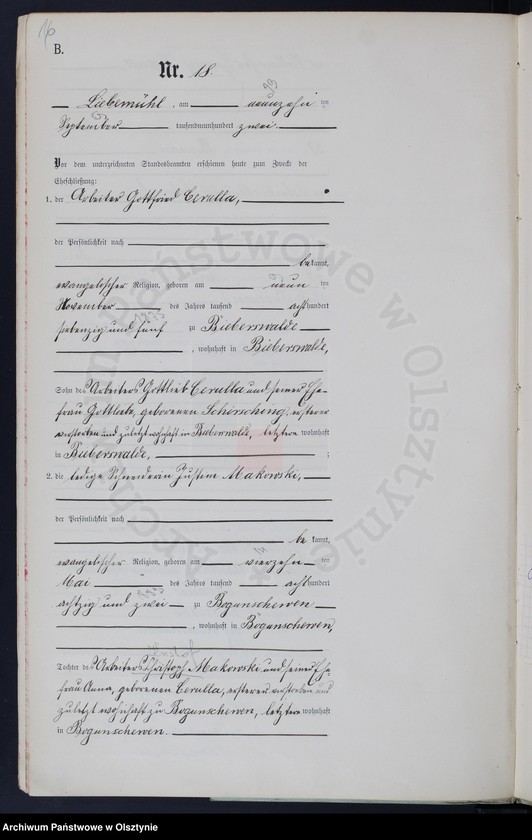 16
B.
Nr. 18.
Liebemühl, am neunzehn ten
September tausendneunhundert zwei.
Vor dem unterzeichneten Standesbeamten erschienen heute zum Zwecke der
Eheschließung:
1. der Arbeiter Gottfried Cerulla,
der Persönlichkeit nach
bekannt,
evangelischer Religion, geboren am neun ten
November des Jahres tausend achthundert
siebenzig und fünf zu Bieberswalde
, wohnhaft in Bieberswalde,
Sohn des Arbeiters Gottlieb Cerulla und seiner Ehe-
frau Gottliebe, geborenen ersterer
verstorben und zuletzt wohnhaft in Bieberswalde, letztere wohnhaft
in Bieberswalde, ;
2. die ledige Schneiderin Justine Makowski,
der Persönlichkeit nach
bekannt,
evangelischer Religion, geboren am vierzehn ten
Mai des Jahres tausend achthundert
achtzig und zwei zu Bogunschewen
, wohnhaft in Bogunschewen,
Tochter des Arbeiters Christoph Makowski und seiner Ehe-
frau Anna, geborenen Cerulla, ersterer verstorben und
zuletzt wohnhaft zu Bogunschewen, letztere wohnhaft
in Bogunschewen.
Archiwum Państwowe w Olsztynie
Archiwum Państwowe w Olsztynie